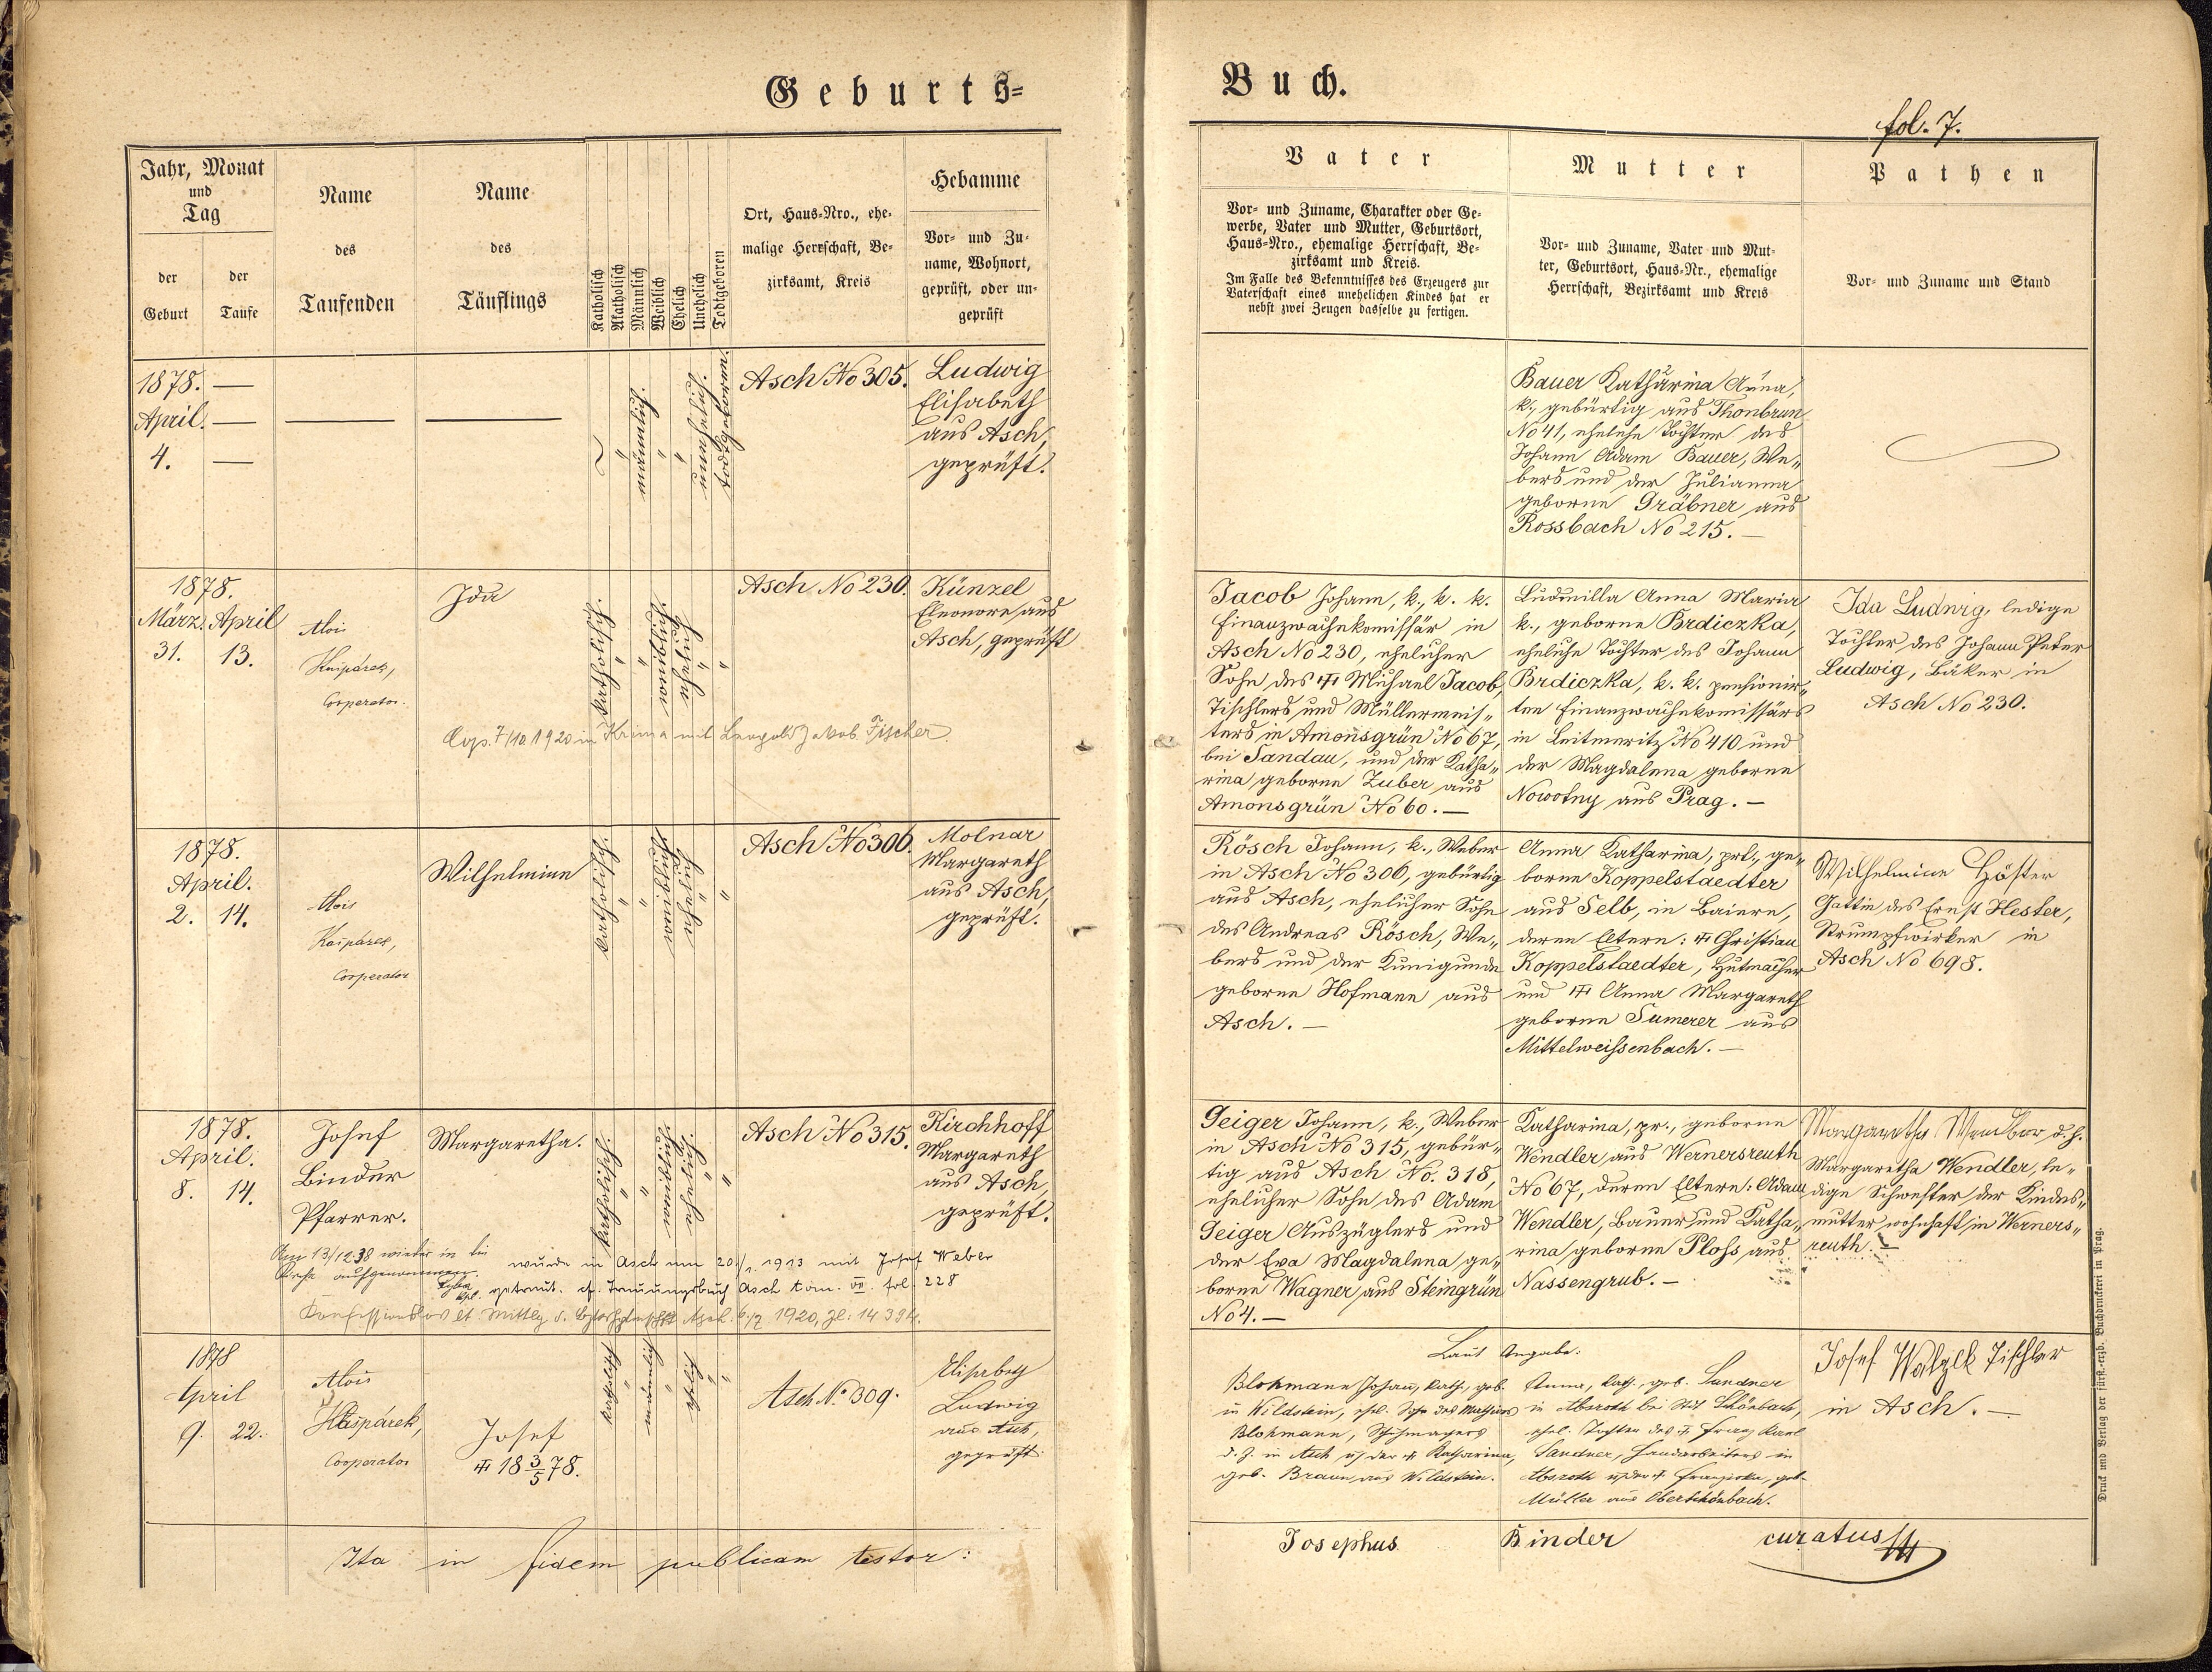 Geburts=
Buch.
fol. 7.
Jahr, Monat
und
Tag
der
Geburt
der
Taufe
Name
des
Taufenden
Name
des
Täuflings
Katholisch
Akatholisch
Männlich
Weiblich
Ehelich
Unehelich
Todtgeboren
Ort, Haus-Nro., ehe-
malige Herrschaft, Be-
zirksamt, Kreis
Hebamme
Vor- und Zu-
name, Wohnort,
geprüft, oder un-
geprüft
Vater
Vor- und Zuname, Charakter oder Ge-
werbe, Vater und Mutter, Geburtsort,
Haus-Nro., ehemalige Herrschaft, Be-
zirksamt und Kreis.
Im Falle des Bekenntnisses des Erzeugers zur
Vaterschaft eines unehelichen Kindes hat er
nebst zwei Zeugen dasselbe zu fertigen.
Mutter
Vor- und Zuname, Vater und Mut-
ter, Geburtsort, Haus-Nr., ehemalige
Herrschaft, Bezirksamt und Kreis
Pathen
Vor- und Zuname und Stand
1878. —
April. —
4. —
männlich.
unehelich.
todtgeboren
Asch No 305.
Ludwig
Elisabeth
aus Asch,
geprüft.
Bauer Katharina Anna,
k., gebürtig aus Thonbrun
No 41, eheliche Tochter des
Johann Adam Bauer, We„
bers und der Julianna
geborne Gräbner aus
Rossbach No 215. —
1878.
März. April
31. 13.
Alois
Kaspárek,
Cooperator.
Ida
katholisch.
weiblich.
ehelich.
Asch No 230.
Künzel
Eleonore aus
Asch, geprüft
Cop. 7/10 1920 in Krima mit Leopold Jakob Fischer.
Jacob Johann, k., k. k.
Finanzwachekomissär in
Asch No 230, ehelicher
Sohn des † Michael Jacob,
Tischlers und Müllermeis„
ters in Amonsgrün No 67,
bei Sandau, und der Katha„
rina geborne Zuber aus
Amonsgrün No 60. —
Ludmilla Anna Maria
k., geborne Brdiczka,
eheliche Tochter des Johann
Brdiczka, k. k. pensionir„
ten Finanzwachekomissärs
in Leitmeritz No 410 und
der Magdalena geborne
Nowotny aus Prag. —
Ida Ludwig, ledige
Tochter des Johann Peter
Ludwig, Bäker in
Asch No 230.
1878.
April.
2. 14.
Alois
Kaspárek,
Cooperator
Wilhelmine
katholisch.
weiblich.
ehelich.
Asch No 306.
Molnar
Margareth
aus Asch,
geprüft.
Rösch Johann, k., Weber
in Asch No 306, gebürtig
aus Asch, ehelicher Sohn
des Andreas Rösch, We„
bers und der Kunigunde
geborne Hofmann aus
Asch. —
Anna Katharina, prt., ge„
borne Koppelstaedter
aus Selb, in Baiern,
deren Eltern: † Christian
Koppelstaedter, Hutmacher
und † Anna Margareth
geborne Sumerer aus
Mittelweissenbach. —
Wilhelmine Höster
Gattin des Ernst Hester,
Strumpfwirker in
Asch No 698.
1878.
April.
8. 14.
Josef
Binder
Pfarrer.
Margaretha.
katholisch.
weiblich.
ehelich.
Asch No 315.
Kirchhoff
Margareth
aus Asch,
geprüft.
13/12 38 wieder in die
Kirche aufgenommen.
wurde in Asch am 20./1. 1913 mit Josef Weber
getraut. cf. Trauungsbuch Asch tom. VI. fol. 228
Konfessionslos lt. Mittlg d. Asch 6/7 1920, Zl: 14394.
Geiger Johann, k., Weber
in Asch No 315, gebür„
tig aus Asch No. 318,
ehelicher Sohn des Adam
Geiger Auszüglers und
der Eva Magdalena ge„
borne Wagner aus Steingrün
No 4. —
Katharina, pr., geborne
Wendler aus Wernersreuth
No 67, deren Eltern: Adam
Wendler, Bauer und Katha„
rina geborne Ploss aus
Nassengrub. —
Margaretha Wendler, d. h.
Margaretha Wendler, le„
dige Schwester der Kindes„
mutter wohnhaft in Werners„
reuth. —
1878
April
9. 22.
Alois
Kaspárek,
Cooperator
Josef
† 18 3/5 78.
katholisch
männlich
ehelich
Asch No 309.
Elisabeth
Ludwig
aus Asch,
geprüft.
Laut Angabe:
Blohmann Johann, kath., geb.
in Wildstein, ehel. Sohn des Mathias
Blohmann, Schuhmachers
d. Z. in Asch u. der † Katharina,
geb. Braun, aus Wildstein.
Anna, kath., geb. Sandner
in Absroth bei Stadt Schönbach,
ehel. Tochter des † Franz Karl
Sandner, Handarbeiters in
Absroth u. der † Franziska, geb.
Müller aus Oberschönbach.
Josef Tischler
in Asch. —
Ita in fidem publicam testor:
Josephus Binder curatus
Druck und Verlag der fürst.-erzb. Buchdruckerei in Prag.